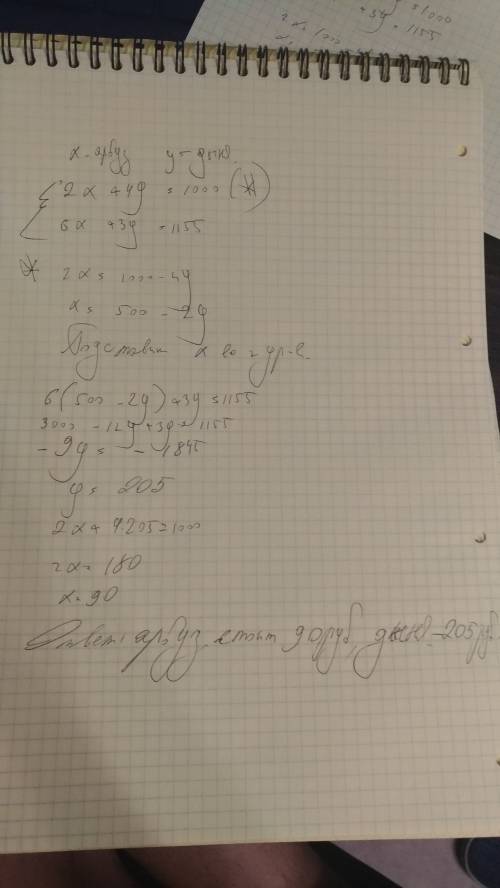 = 1000
+ 3y = 1155
2x = 1000
x - арбуз y - дыня.
2x + 4y = 1000 (*)
6x + 3y = 1155
* 2x = 1000 - 4y
x = 500 - 2y
Подставим x во 2 ур-е.
6(500 - 2y) + 3y = 1155
3000 - 12y + 3y = 1155
- 9y = - 1845
y = 205
2x + 4·205 = 1000
2x = 180
x = 90
Ответ: арбуз стоит 90 руб, дыня - 205 руб.